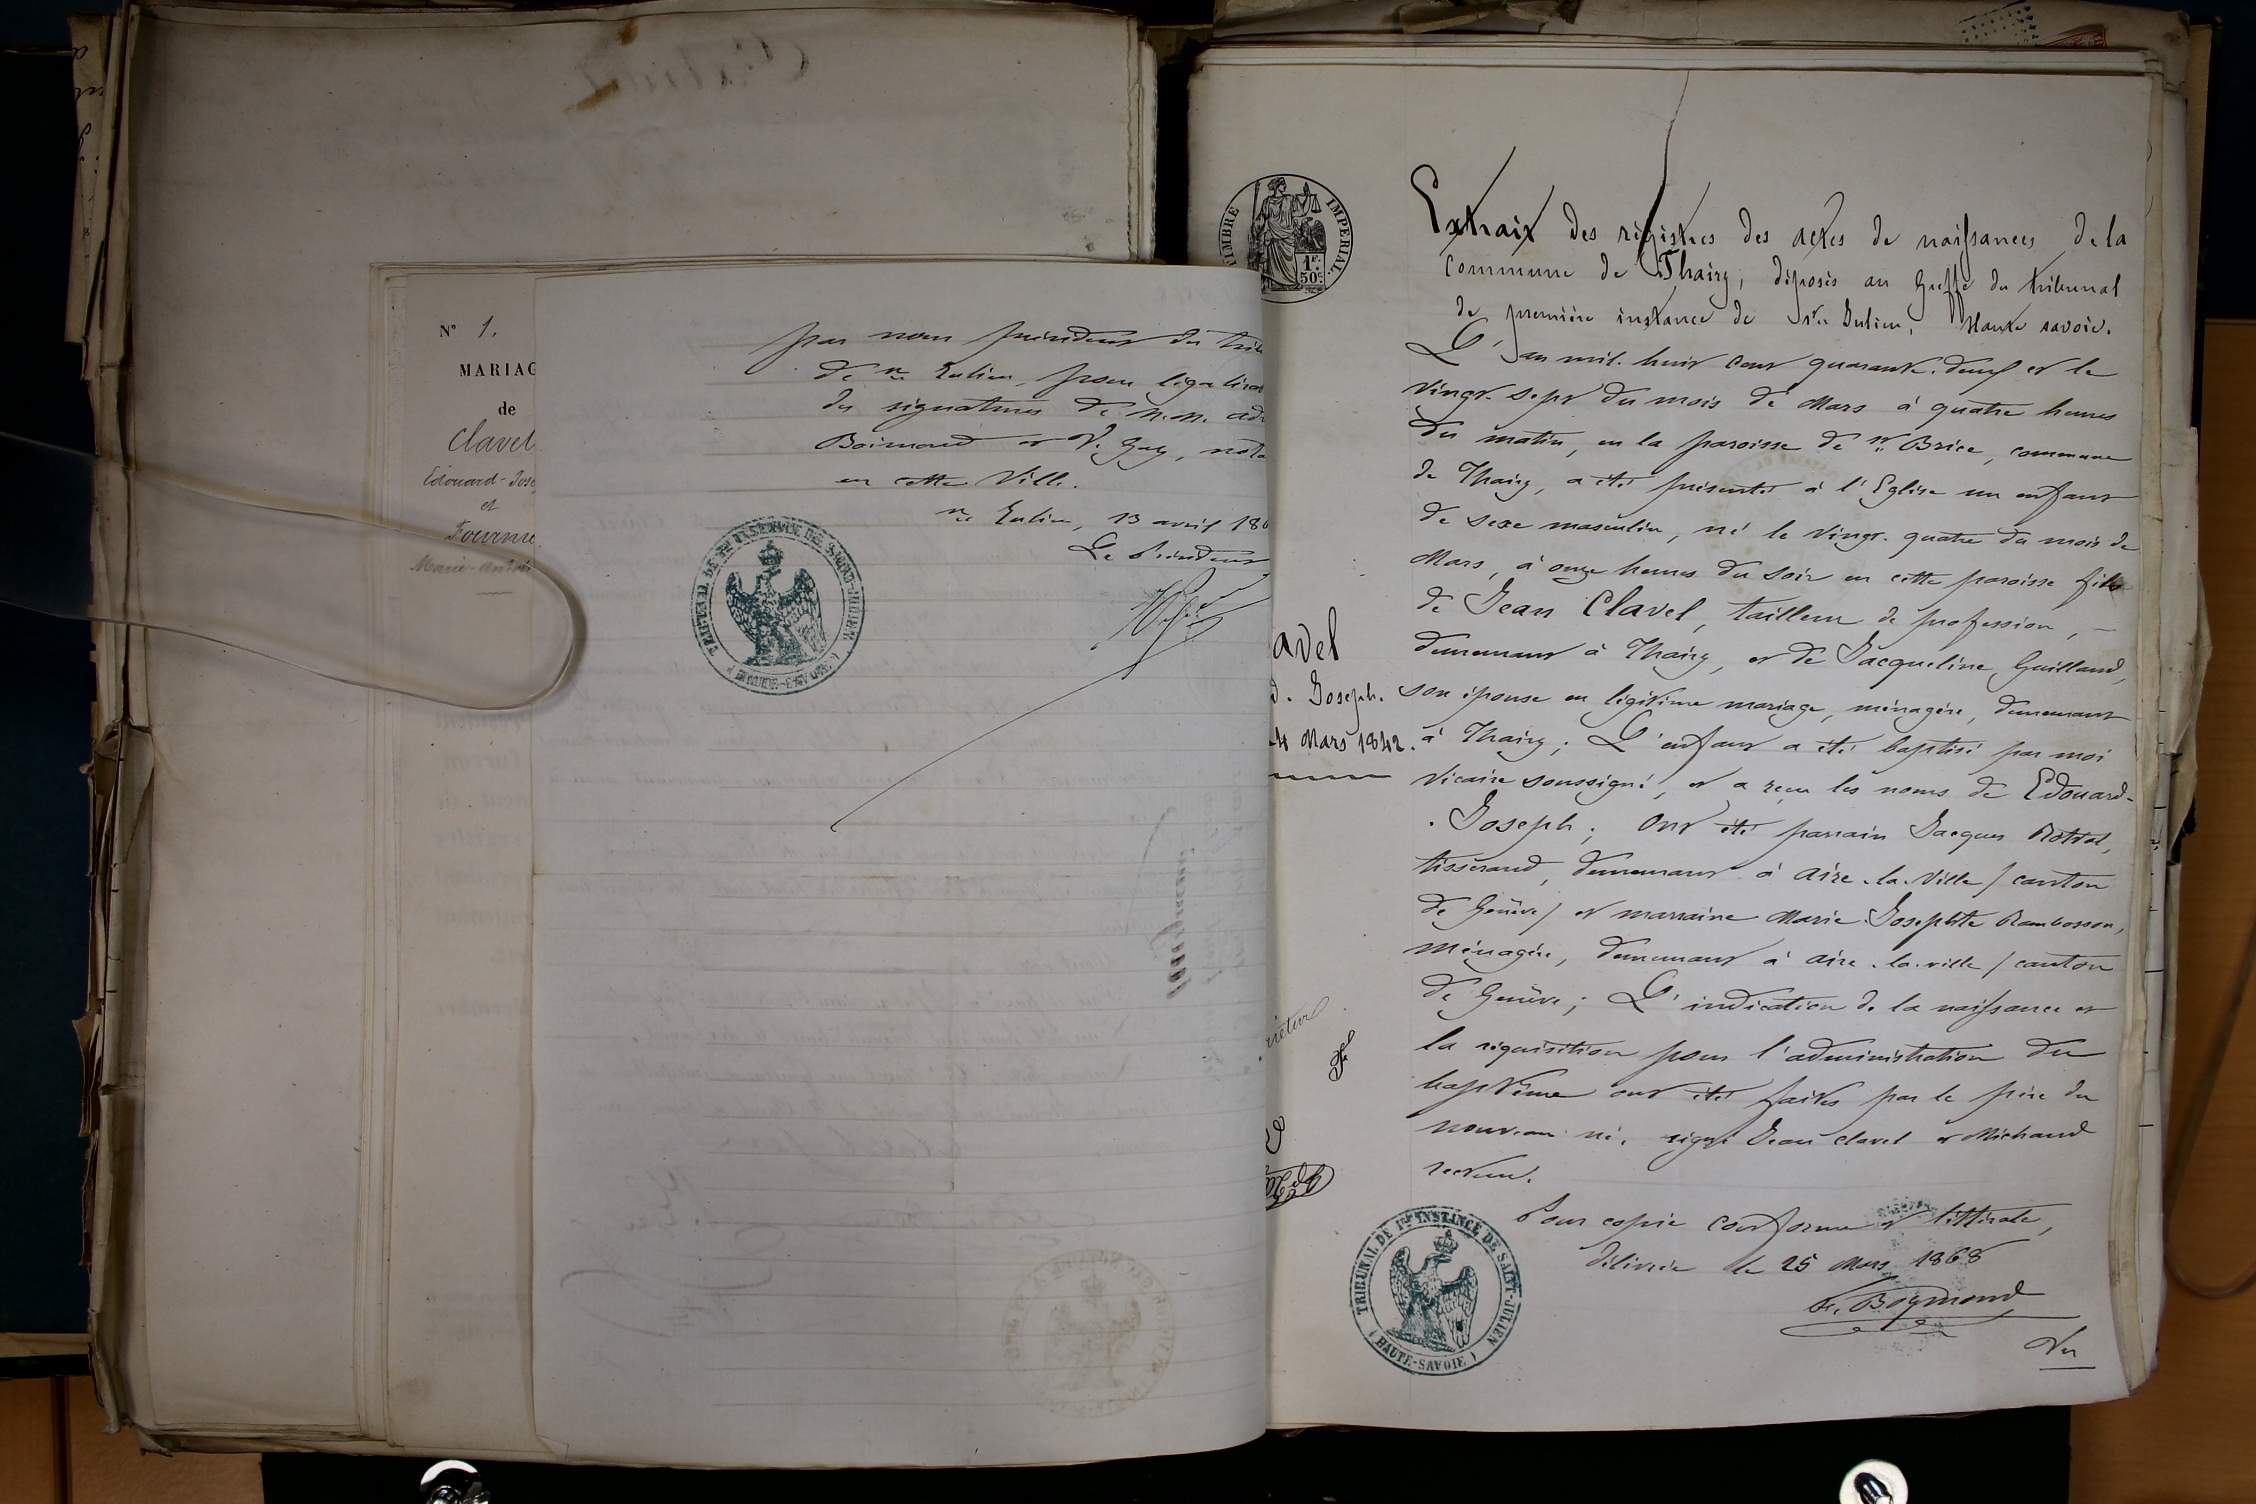 N° 1.
MARIAG
de
Clavel
Edouard-Jose
et
Fournie
Marie-Antoi
par nous président du trib
de St Julien, pour légalisat
des signatures de M.M. adr
Boimond et V. Gay, nota
en cette Ville.
St Julien, 13 avril 186
Le Président
TRIBUNAL DE 1re INSTANCE DE SAINT-JULIEN
(HAUTE-SAVOIE)
TIMBRE IMPERIAL
1F.
50c
Extrait des registres des actes de naissances de la
commune de Thairy, déposés au Greffe du tribunal
de première instance de St Julien, Haute savoie.
L'an mil huit cent quarante-deux et le
vingt-sept du mois de Mars à quatre heures
du matin, en la paroisse de St Brice, commune
de Thairy, a été présenté à l'Eglise un enfant
de sexe masculin, né le vingt-quatre du mois de
Mars, à onze heures du soir en cette paroisse fils
de Jean Clavel, tailleur de profession,
demeurant à Thairy, et de Jacqueline Guilland,
son épouse en légitime mariage, ménagère, demeurant
à Thairy; L'enfant a été baptisé par moi
vicaire soussigné, et a reçu les noms de Edouard-
Joseph; Ont été parrain Jacques
tisserand, demeurant à Aire-la-Ville / canton
de Genève / et marraine Marie Josephte Rambosson,
ménagère, demeurant à Aire-la-ville / canton
de Genève; L'indication de la naissance et
la réquisition pour l'administration du
baptême ont été faites par le père du
nouveau né. signé Jean Clavel et Michaud
recteur.
Pour copie conforme et littérale,
délivrée le 25 Mars 1868
Boymond
avel
d. Joseph.
4 Mars 1842.
TRIBUNAL DE 1re INSTANCE DE SAINT-JULIEN
(HAUTE-SAVOIE)